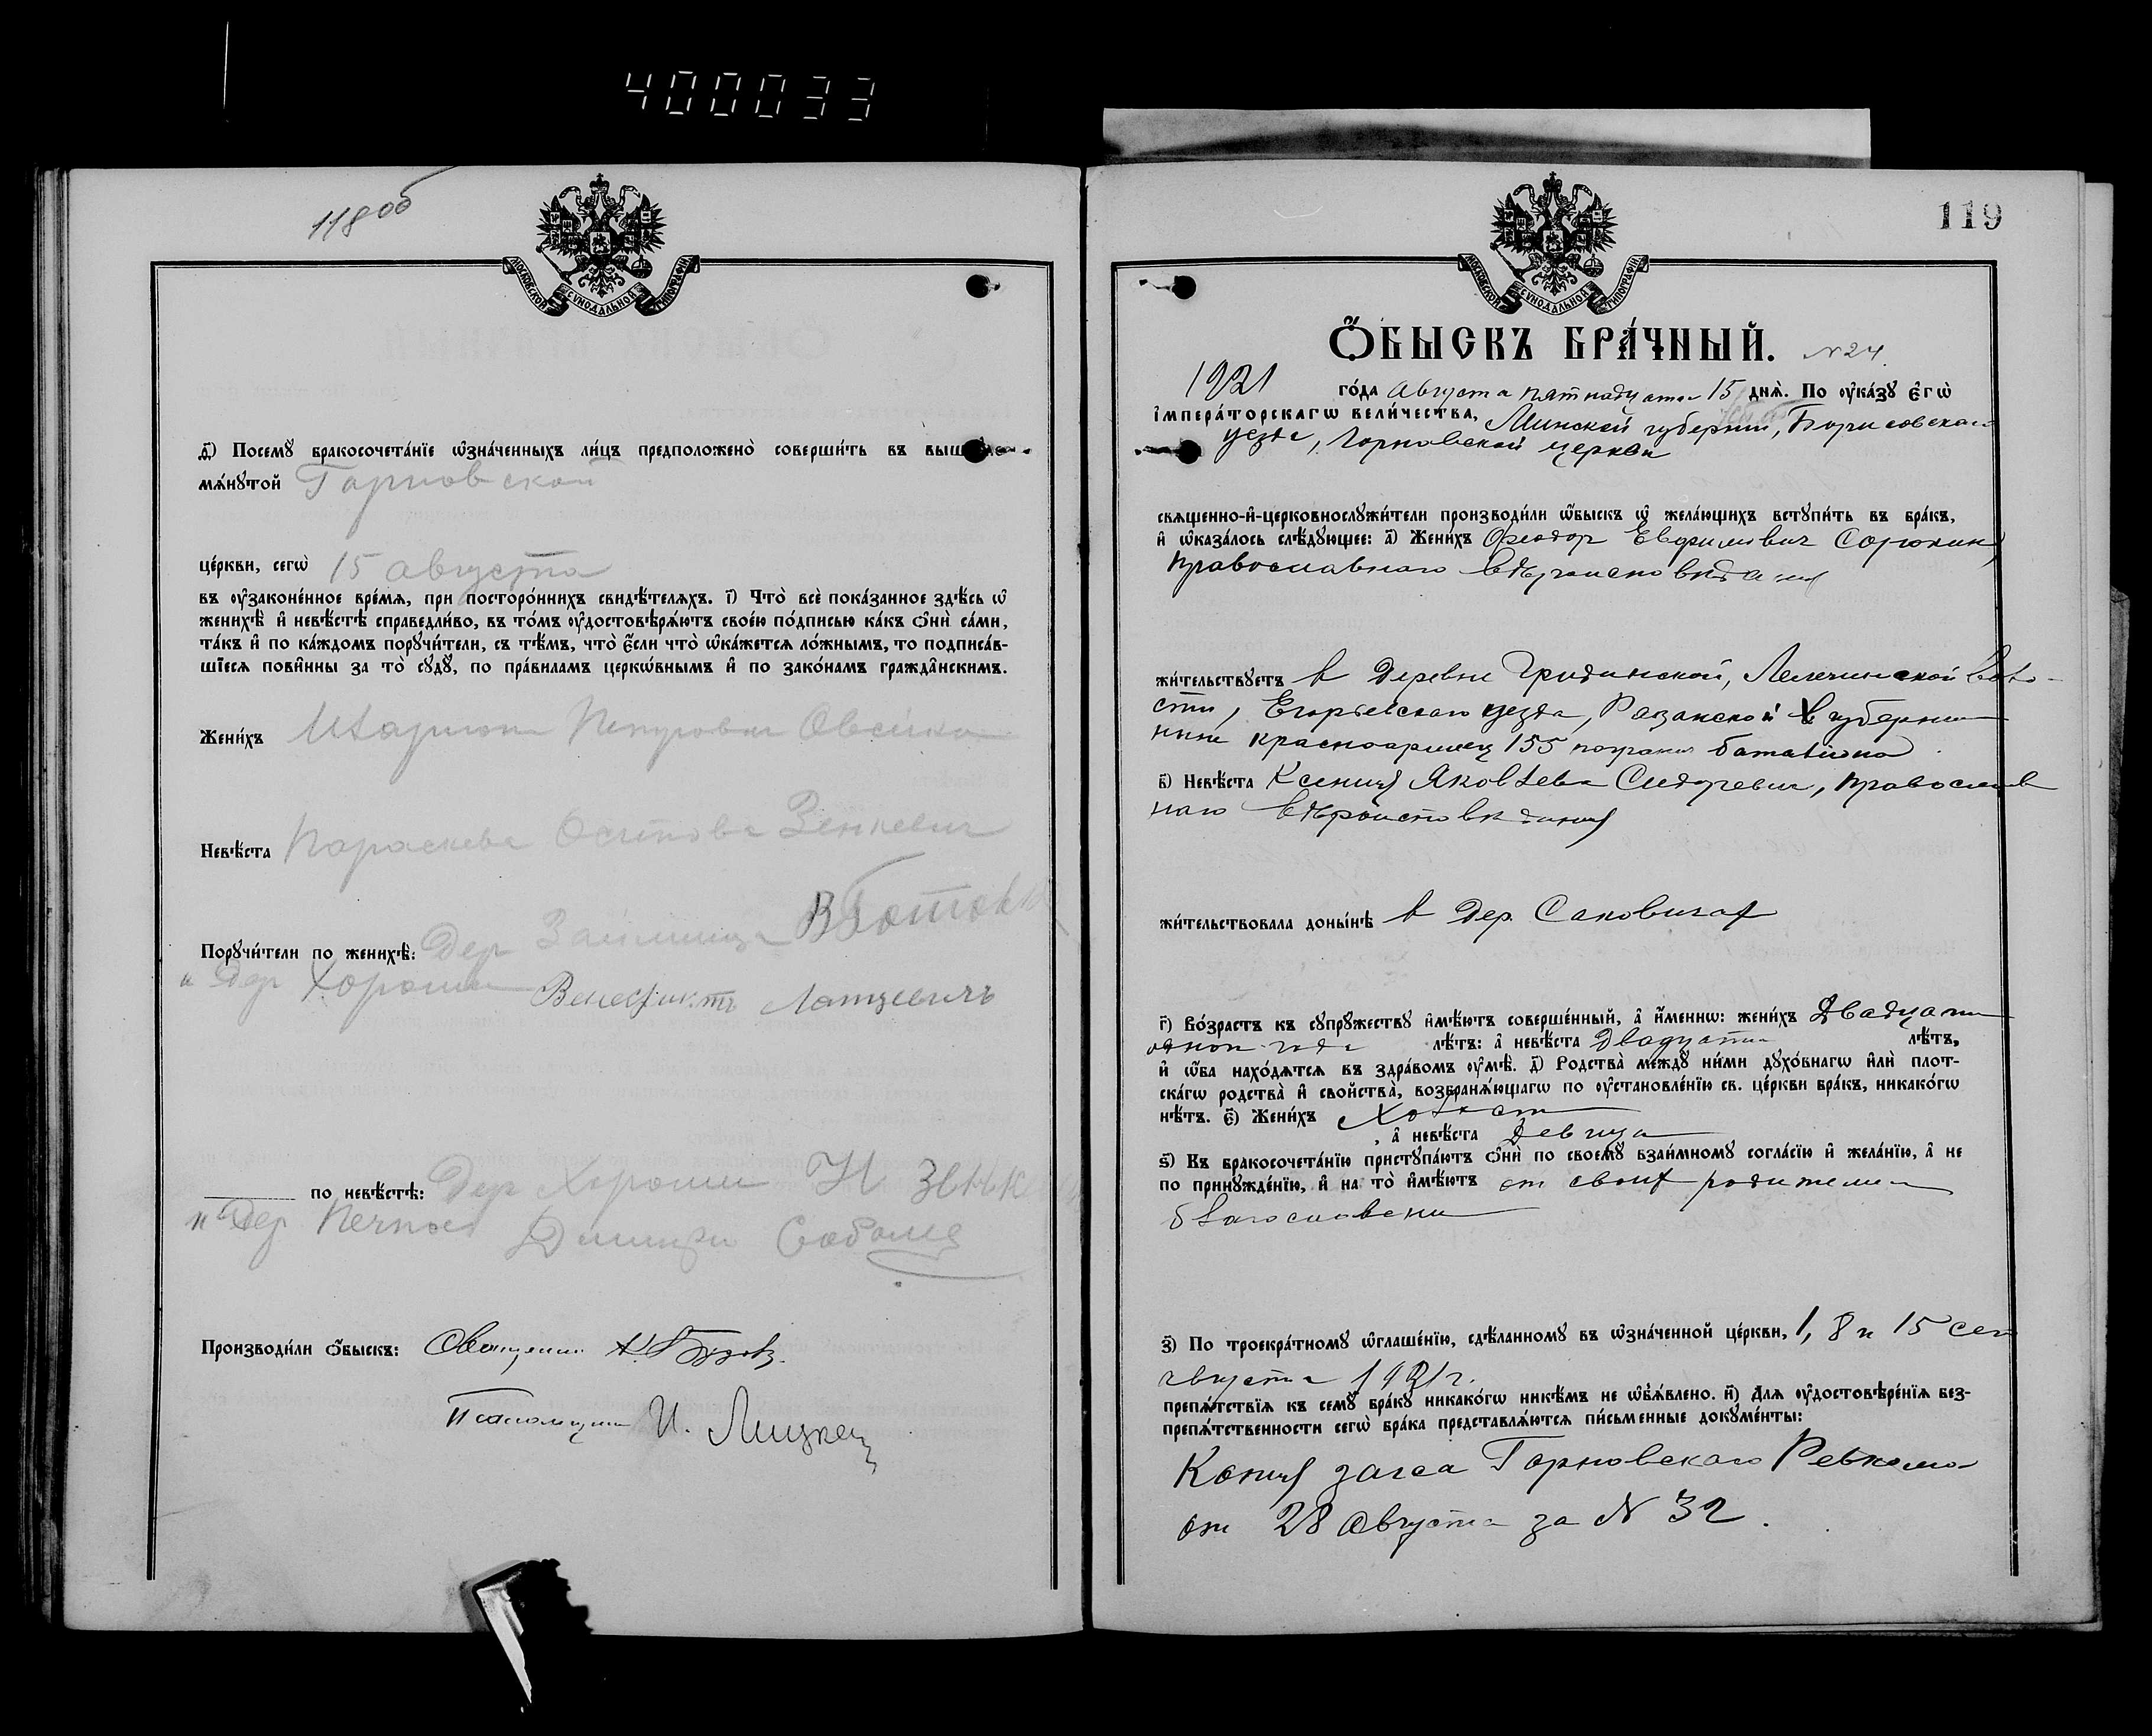 400033
118 об
МОСКОВСКОЙ СѴНОДАЛЬНОЙ ТИПОГРАФІИ
ѳ҃) Посемꙋ бракосочета́нїе ѡ҆зна́ченныхъ ли́цъ предположено̀ соверши́ть въ выш
мѧ́нꙋтой Гарновской
це́ркви, сегѡ̀ 15 августа
въ ᲂу҆зако́ненное вре́мѧ, при посторо́ннихъ свидѣ́телѧхъ. і҃) Что̀ всѐ пока́занное здѣ́сь ѡ҆
женихѣ̀ и҆ невѣ́стѣ справедли́во, въ то́мъ ᲂу҆достовѣрѧ́ютъ свое́ю по́дписью ка́къ ѻ҆нѝ са́ми,
та́къ и҆ по ка́ждомъ порꙋчи́тели, съ тѣ́мъ, что̀ є҆́сли что̀ ѡ҆ка́жетсѧ ло́жнымъ, то подписа́в-
шїесѧ пови́нны за то̀ сꙋдꙋ̀, по пра́виламъ церкѡ́внымъ и҆ по зако́намъ гражда̂нскимъ.
Жени́хъ Иларион Петрович Овсейко
Невѣ́ста Параскева Осипова Зенкевич
Порꙋчи́тели по женихѣ̀: Дер Займище
" Дер Хороши Венедиктъ Лапцевичъ
по невѣ́стѣ: Дер Хороши Н Зенк
" Дер Димитри
Производи́ли ѻ҆́быскъ: Священник
Псаломщик И. Лицке
119
МОСКОВСКОЙ СѴНОДАЛЬНОЙ ТИПОГРАФІИ
Ѻ҆́БЫСКЪ БРА́ЧНЫЙ. N 24.
1921 го́да Августа пятнадцатого 15 днѧ̀. По ᲂу҆ка́зꙋ є҆гѡ̀
і҆мпера́торскагѡ вели́чества, Минской губернии, Борисовского
уезда, Горновской церкви
свѧщенно-и҆-церковнослꙋжи́тели производи́ли ѡ҆́быскъ ѡ҆ жела́ющихъ встꙋпи́ть въ бра́къ,
и҆ ѡ҆каза́лось слѣ́дꙋющее: а҃) Жени́хъ Феодор Евфимович Сорокин,
православного вѣроисповѣдания
жи́тельствꙋетъ в деревне Гридинской, Лелечинской воло-
сти, Егорьевского уезда, Рязанской губернии
ныне красноармеец 155 погран батальона
в҃) Невѣ́ста Ксения Яковлева Сидоревич, православ
ного вѣроисповедания
жи́тельствовала доны́нѣ в дер. Саковичах
г҃) Во́зрастъ къ сꙋпрꙋ́жествꙋ и҆мѣ́ютъ соверше́нный, а҆ и҆́менно: жени́хъ Двадцати
одного года лѣ́тъ: а҆ невѣ́ста Двадцати лѣ́тъ,
и҆ ѻ҆́ба нахо́дѧтсѧ въ здра́вомъ ᲂу҆мѣ̀. д҃) Родства̀ междꙋ ни́ми дꙋхо́внагѡ и҆лѝ плот-
ска́гѡ родства̀ и҆ сво́йства̀, возбранѧ́ющагѡ по ᲂу҆становле́нїю св. це́ркви бра́къ, никако́гѡ
нѣ́тъ. є҃) Жени́хъ Холост
, а҆ невѣ́ста Девица
ѕ҃) Въ бракосочета́нїе пристꙋпа́ютъ ѻ҆нѝ по своемꙋ̀ взаи́мномꙋ согла́сїю и҆ жела́нїю, а҆ не
по принꙋжде́нїю, и҆ на то̀ и҆мѣ́ютъ от своих родителей
благословение
з҃) По троекра́тномꙋ ѡ҆глаше́нїю, сдѣ́ланномꙋ въ ѡ҆зна́ченной це́ркви, 1, 8 и 15 сего
августа 1921 г.
препѧ́тствїѧ къ семꙋ̀ бра́кꙋ никако́гѡ никѣ́мъ не ѡ҆б̾ѧ́влено. и҃) Длѧ ᲂу҆достовѣре́нїѧ без-
препѧ́тственности сегѡ̀ бра́ка представлѧ́ютсѧ пи́сьменные докꙋме́нты:
Копия загса Горновского Ревкома
от 28 Августа за N 32.